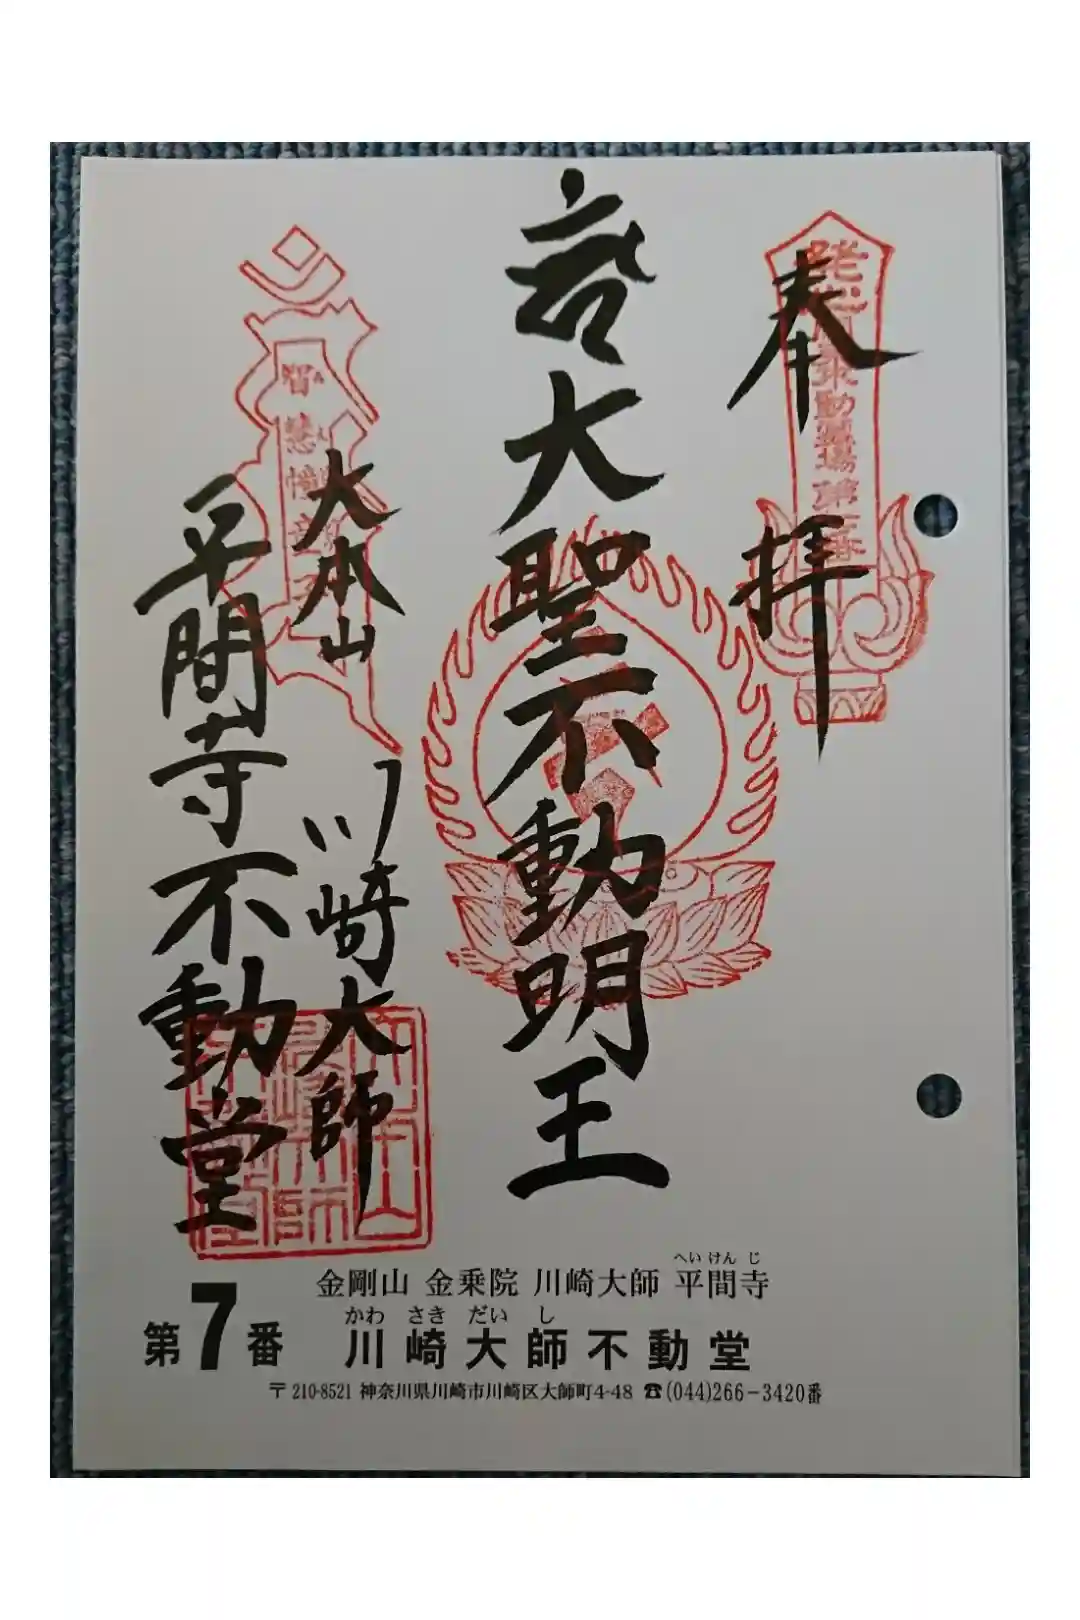 奉拝
大聖不動明王
大本山
川崎大師
平間寺不動堂
智慧幢
金剛山 金乗院 川崎大師 平間寺
へいけんじ
かわさきだいし
第7番 川崎大師不動堂
〒210-8521 神奈川県川崎市川崎区大師町4-48 ☎(044)266-3420番